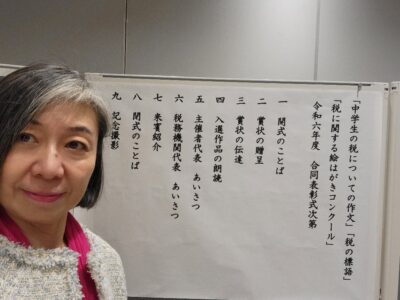 「中学生の税についての作文」「税の標語」
「税に関する絵はがきコンクール」
令和六年度　合同表彰式次第
一　開式のことば
二　賞状の贈呈
三　賞状の伝達
四　入選作品の朗読
五　主催者代表　あいさつ
六　税務機関代表　あいさつ
七　来賓紹介
八　閉式のことば
九　記念撮影